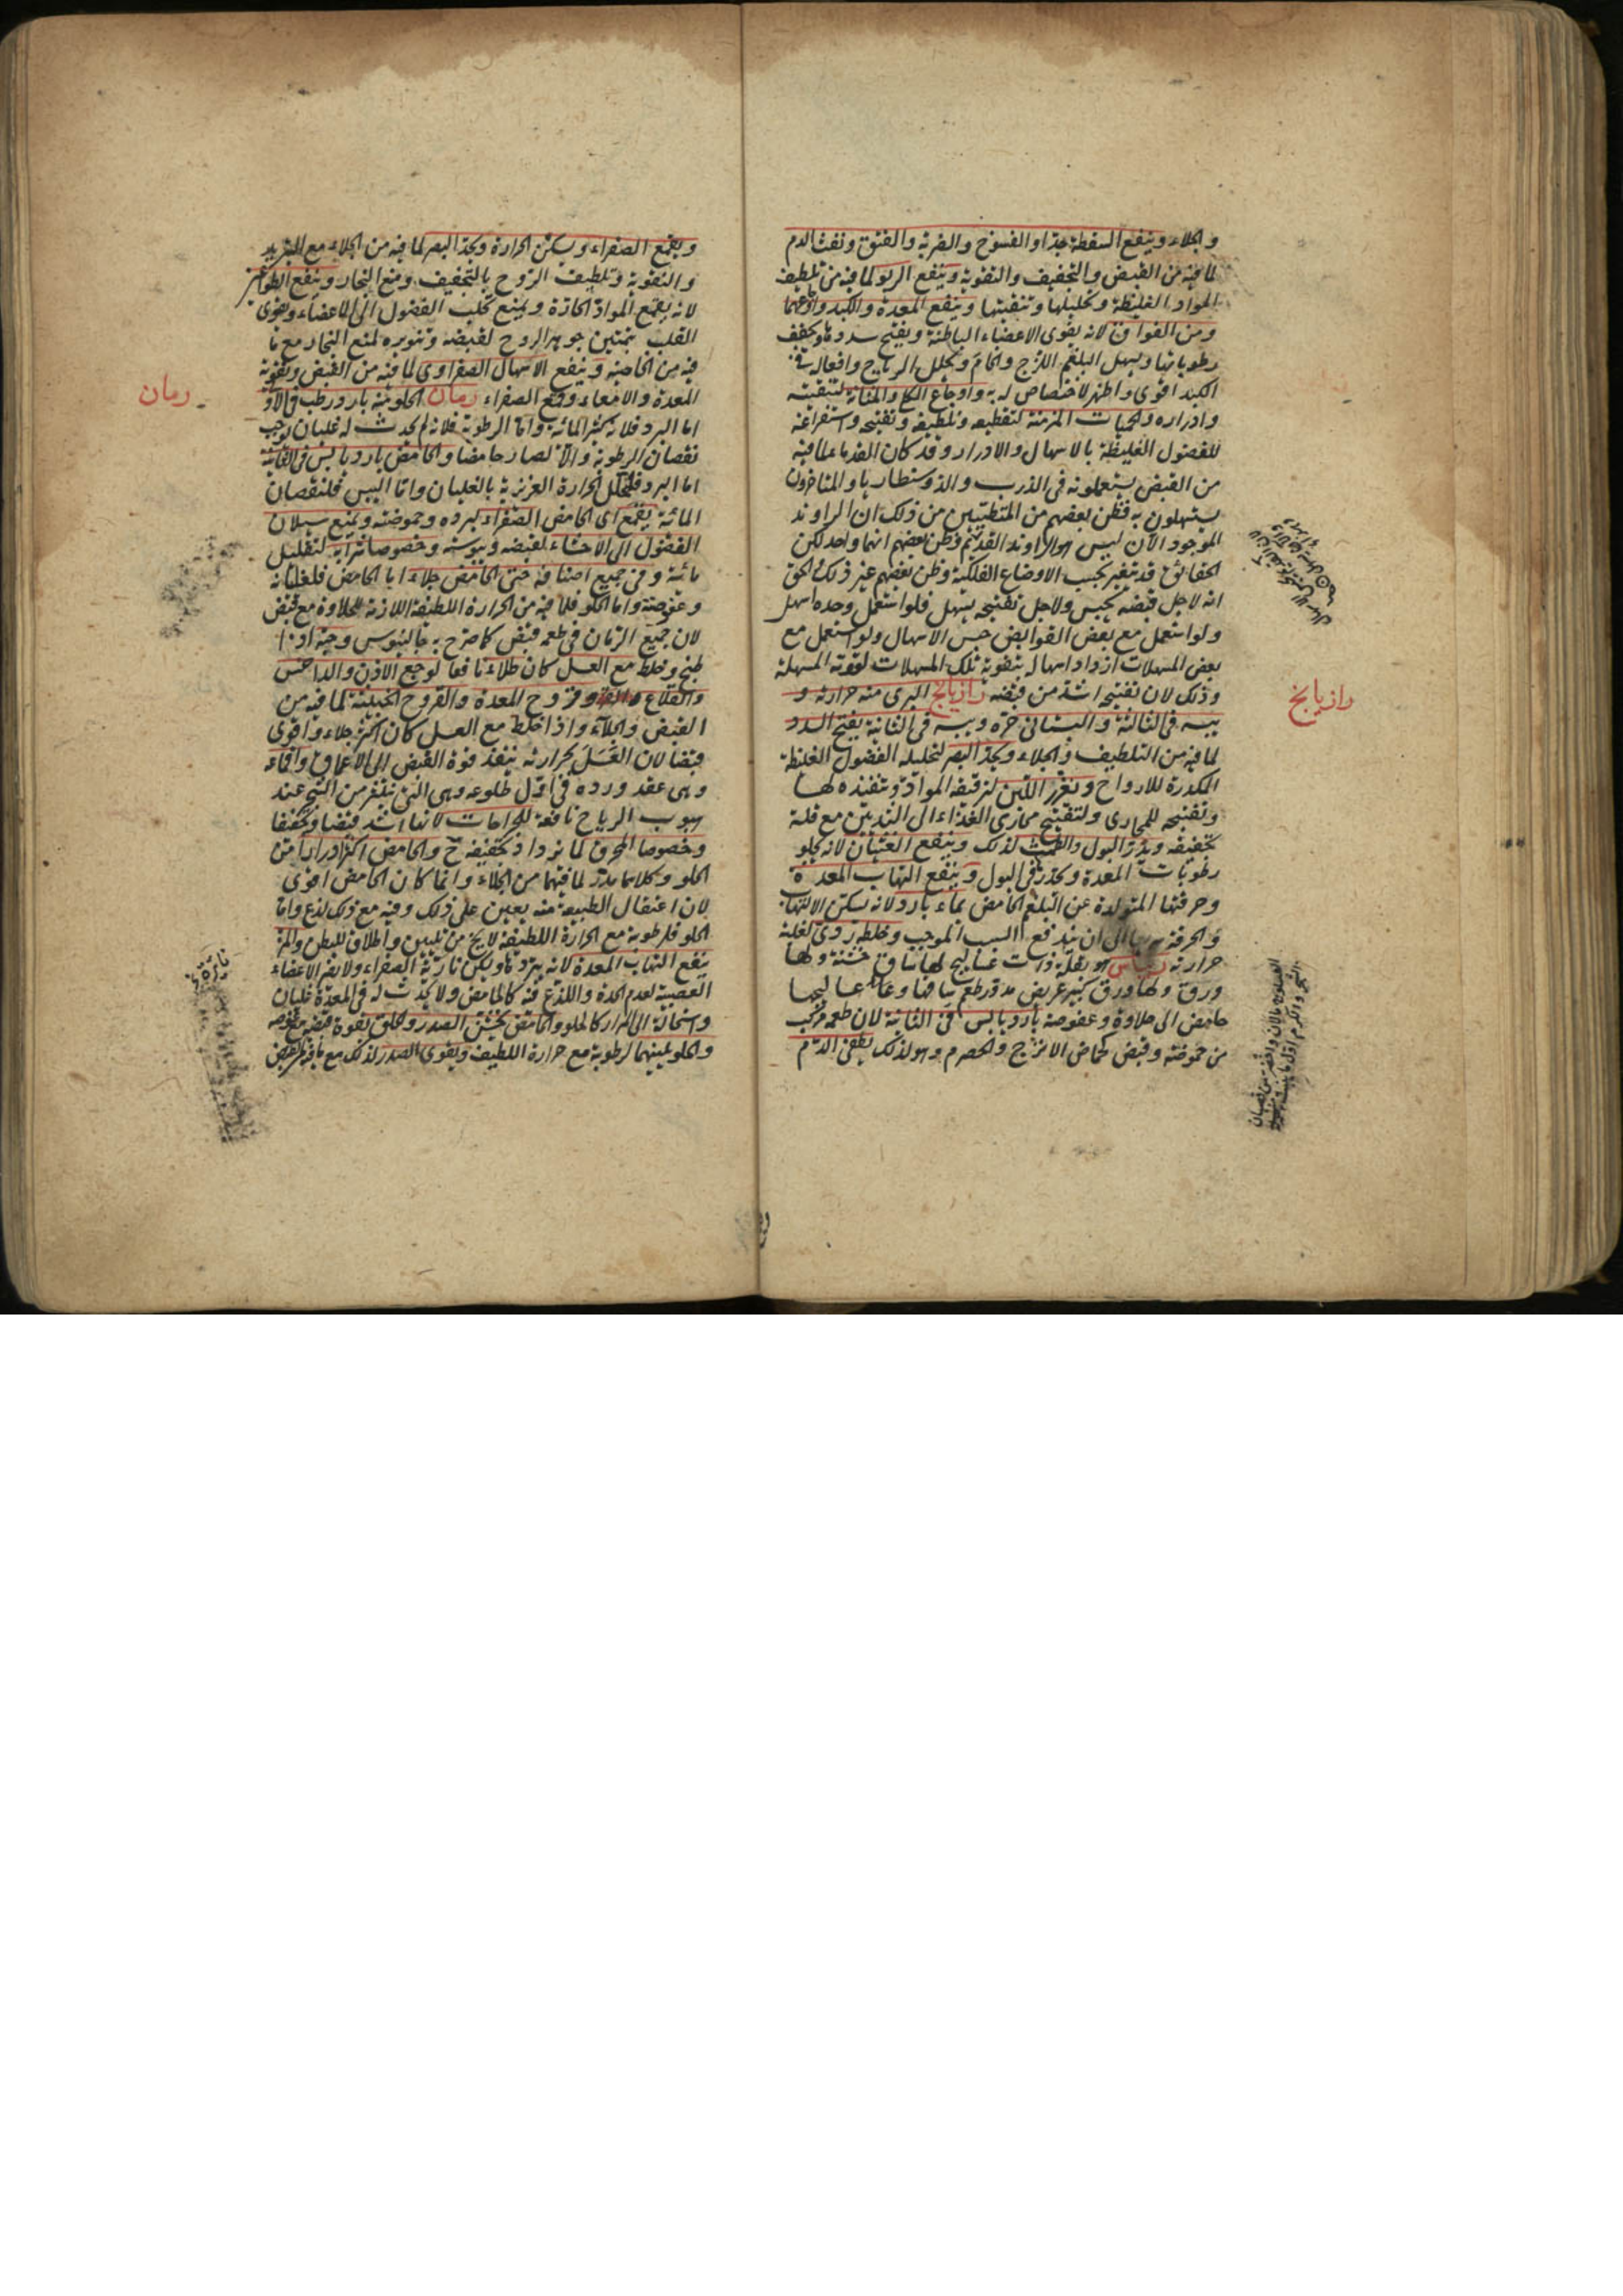 والجلاء وينفع السقطة جدا والفسوخ والضربة والفتق ونفث الدم
لما فيه من القبض والتجفيف والتقوية وينفع الربو لما فيه من تلطيف
المواد الغليظة وتحليلها وتنقيتها وينفع المعدة والكبد واوجاعهما
ومن الفواق لانه يقوى الاعضاء الباطنة ويفتح سددها ويجفف
رطوباتها ويسهل البلغم اللزج والخام ويحلل الرياح وافعاله في
الكبد اقوى واظهر لاختصاص له به واوجاع الكلى والمثانة لتنقيته
وادراره والحميات المزمنة لتقطيعه وتلطيفه وتفتيحه واستفراغه
للفضول الغليظة بالاسهال والادرار وقد كان القدماء لما فيه
من القبض يستعملونه فى الذرب والذوسنطاريا والمتاخرون
يستهلون به فظن بعضهم من المتطببين من ذلك ان الراوند
الموجود الآن ليس هو الراوند القديم وظن بعضهم انهما واحد لكن
الحقائق قد تتغير بحسب الاوضاع الفلكية وظن بعضهم غير ذلك والحق
انه لاجل قبضه يحبس ولاجل تفتيحه يسهل فلو استعمل وحده اسهل
ولو استعمل مع بعض القوابض حبس الاسهال ولو استعمل مع
بعض المسهلات ازداد اسهاله بتقوية تلك المسهلات لقوته المسهلة
وذلك لان تفتيحه اشد من قبضه رازيانج البرى منه حرارته و
يبسه فى الثالثة والبستانى حره ويبسه فى الثانية يفتح السدد
لما فيه من التلطيف والجلاء ويحد البصر لتحليله الفضول الغليظة
المكدرة للارواح ويغزر اللبن لترقيقه المواد وتنفيذه لها
وتفتيحه للمجارى ولتفتيح مجارى الغذاء الى الثديين مع قلة
تجفيفه ويدر البول والطمث لذلك وينفع الغثيان لانه يجلو
رطوبات المعدة ويحدر فى البول وينفع التهاب المعدة
وحرقتها المتولدة عن البلغم الحامض بماء بارد لانه يسكن الالتهاب
والحرقة الى ان يندفع السبب الموجب وخلطه ردى لغلبة
حرارته ريباس هو بقلة ذات عساليج لها ساق خشنة ولها
ورق كبير عريض مدور طعم عساليجها
حامض الى حلاوة وعفوصة بارد يابس فى الثانية لان طعمه مركب
من حموضة وقبض كحماض الاترج والحصرم وهو لذلك يطفى الدم
رازيانج
ويقمع الصفراء ويسكن الحرارة ويحد البصر لما فيه من الجلاء مع التبريد
والتقوية وتلطيف الروح بالتجفيف ومنع البخار وينفع الطواعين
لانه يقمع المواد الحادة ويمنع تحلب الفضول الى الاعضاء ويقوى
القلب بتمتين جوهر الروح لقبضه وتنويره لمنع البخار مع ما
فيه من الخاصية وينفع الاسهال الصفراوى لما فيه من القبض وتقوية
المعدة والامعاء وقمع الصفراء رمان الحلو منه بارد رطب فى الاولى
اما البرد فلانه كثير المائية واما الرطوبة فلانه لم يحدث له غليان يوجب
نقصان الرطوبة والا لصار حامضا والحامض بارد يابس فى الثانية
اما البرد فلتحلل الحرارة الغريزية بالغليان واما اليبس فلنقصان
المائية يقمع اى الحامض الصفراء لبرده وحموضته ويمنع سيلان
الفضول الى الاحشاء لقبضه ويبوسته وخصوصا شرابه لتقليل
مائيته وفى جميع اصنافه حتى الحامض جلاء اما الحامض فلغليانه
وعفوصته واما الحلو فلما فيه من الحرارة اللطيفة اللازمة للحلاوة مع قبض
لان جميع الرمان فى طعمه قبض كما صرح به جالينوس وحبه اذا
طبخ وخلط مع العسل كان طلاء نافعا لوجع الاذن والداحس
والقلاع وقروح المعدة والقروح الخبيثة لما فيه من
القبض والجلاء واذا خلط مع العسل كان اكثر جلاء واقوى
قبضا لان العسل بحرارته ينفذ قوة القبض الى الاعماق واقماعه
وهى عقد ورده فى اول طلوعه وهى التى تنتثر من الشجر عند
هبوب الرياح نافعة للجراحات لانها اشد قبضا وتجفيفا
وخصوصا المحرق لما يزداد تجفيفه ح والحامض اكثر ادرارا من
الحلو وكلاهما يدر لما فيهما من الجلاء وانما كان الحامض اقوى
لان اعتقال الطبيعة منه يعين على ذلك وفيه مع ذلك لذع واما
الحلو فلرطوبته مع الحرارة اللطيفة لا يخ من تليين واطلاق للبطن والمز
ينفع التهاب المعدة لانه يبردها ويسكن نارية الصفراء ولا يضر الاعضاء
العصبية لعدم الحدة واللذع فيه كالحامض ولا يحدث له فى المعدة غليان
واستحالة الى المرار كالحلو والحامض يخشن الصدر والحلق لقوة قبضه
والحلو يلينهما لرطوبته مع حرارة اللطيف ويقوى الصدر لذلك مع ما فيه من القبض
رمان